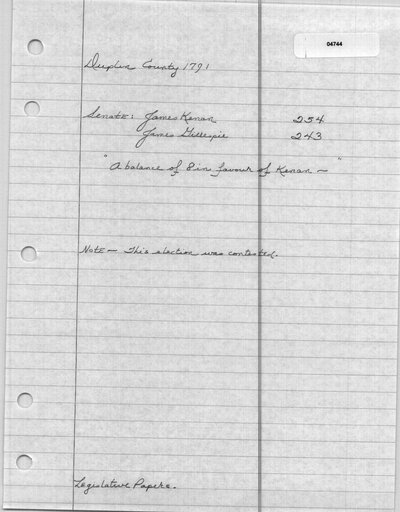 04744
Duplin County 1791
Senate: James Kenan 254
James Gillespie 243
"A balance of 8 in favour of Kenan — "
Note — This election was contested.
Legislative Papers.